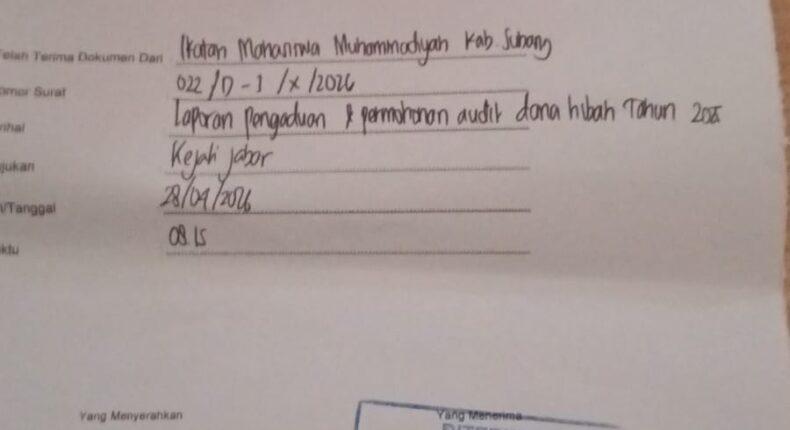 Telah Terima Dokumen Dari Ikatan Mahasiswa Muhammadiyah Kab. Subang
omor Surat 022/D-I/X/2026
rihal Laporan pengaduan & permohonan audit dana hibah Tahun
jukan Kejati jabar
i/Tanggal 28/04/2026
ktu 08.15
Yang Menyerahkan Yang Menerima